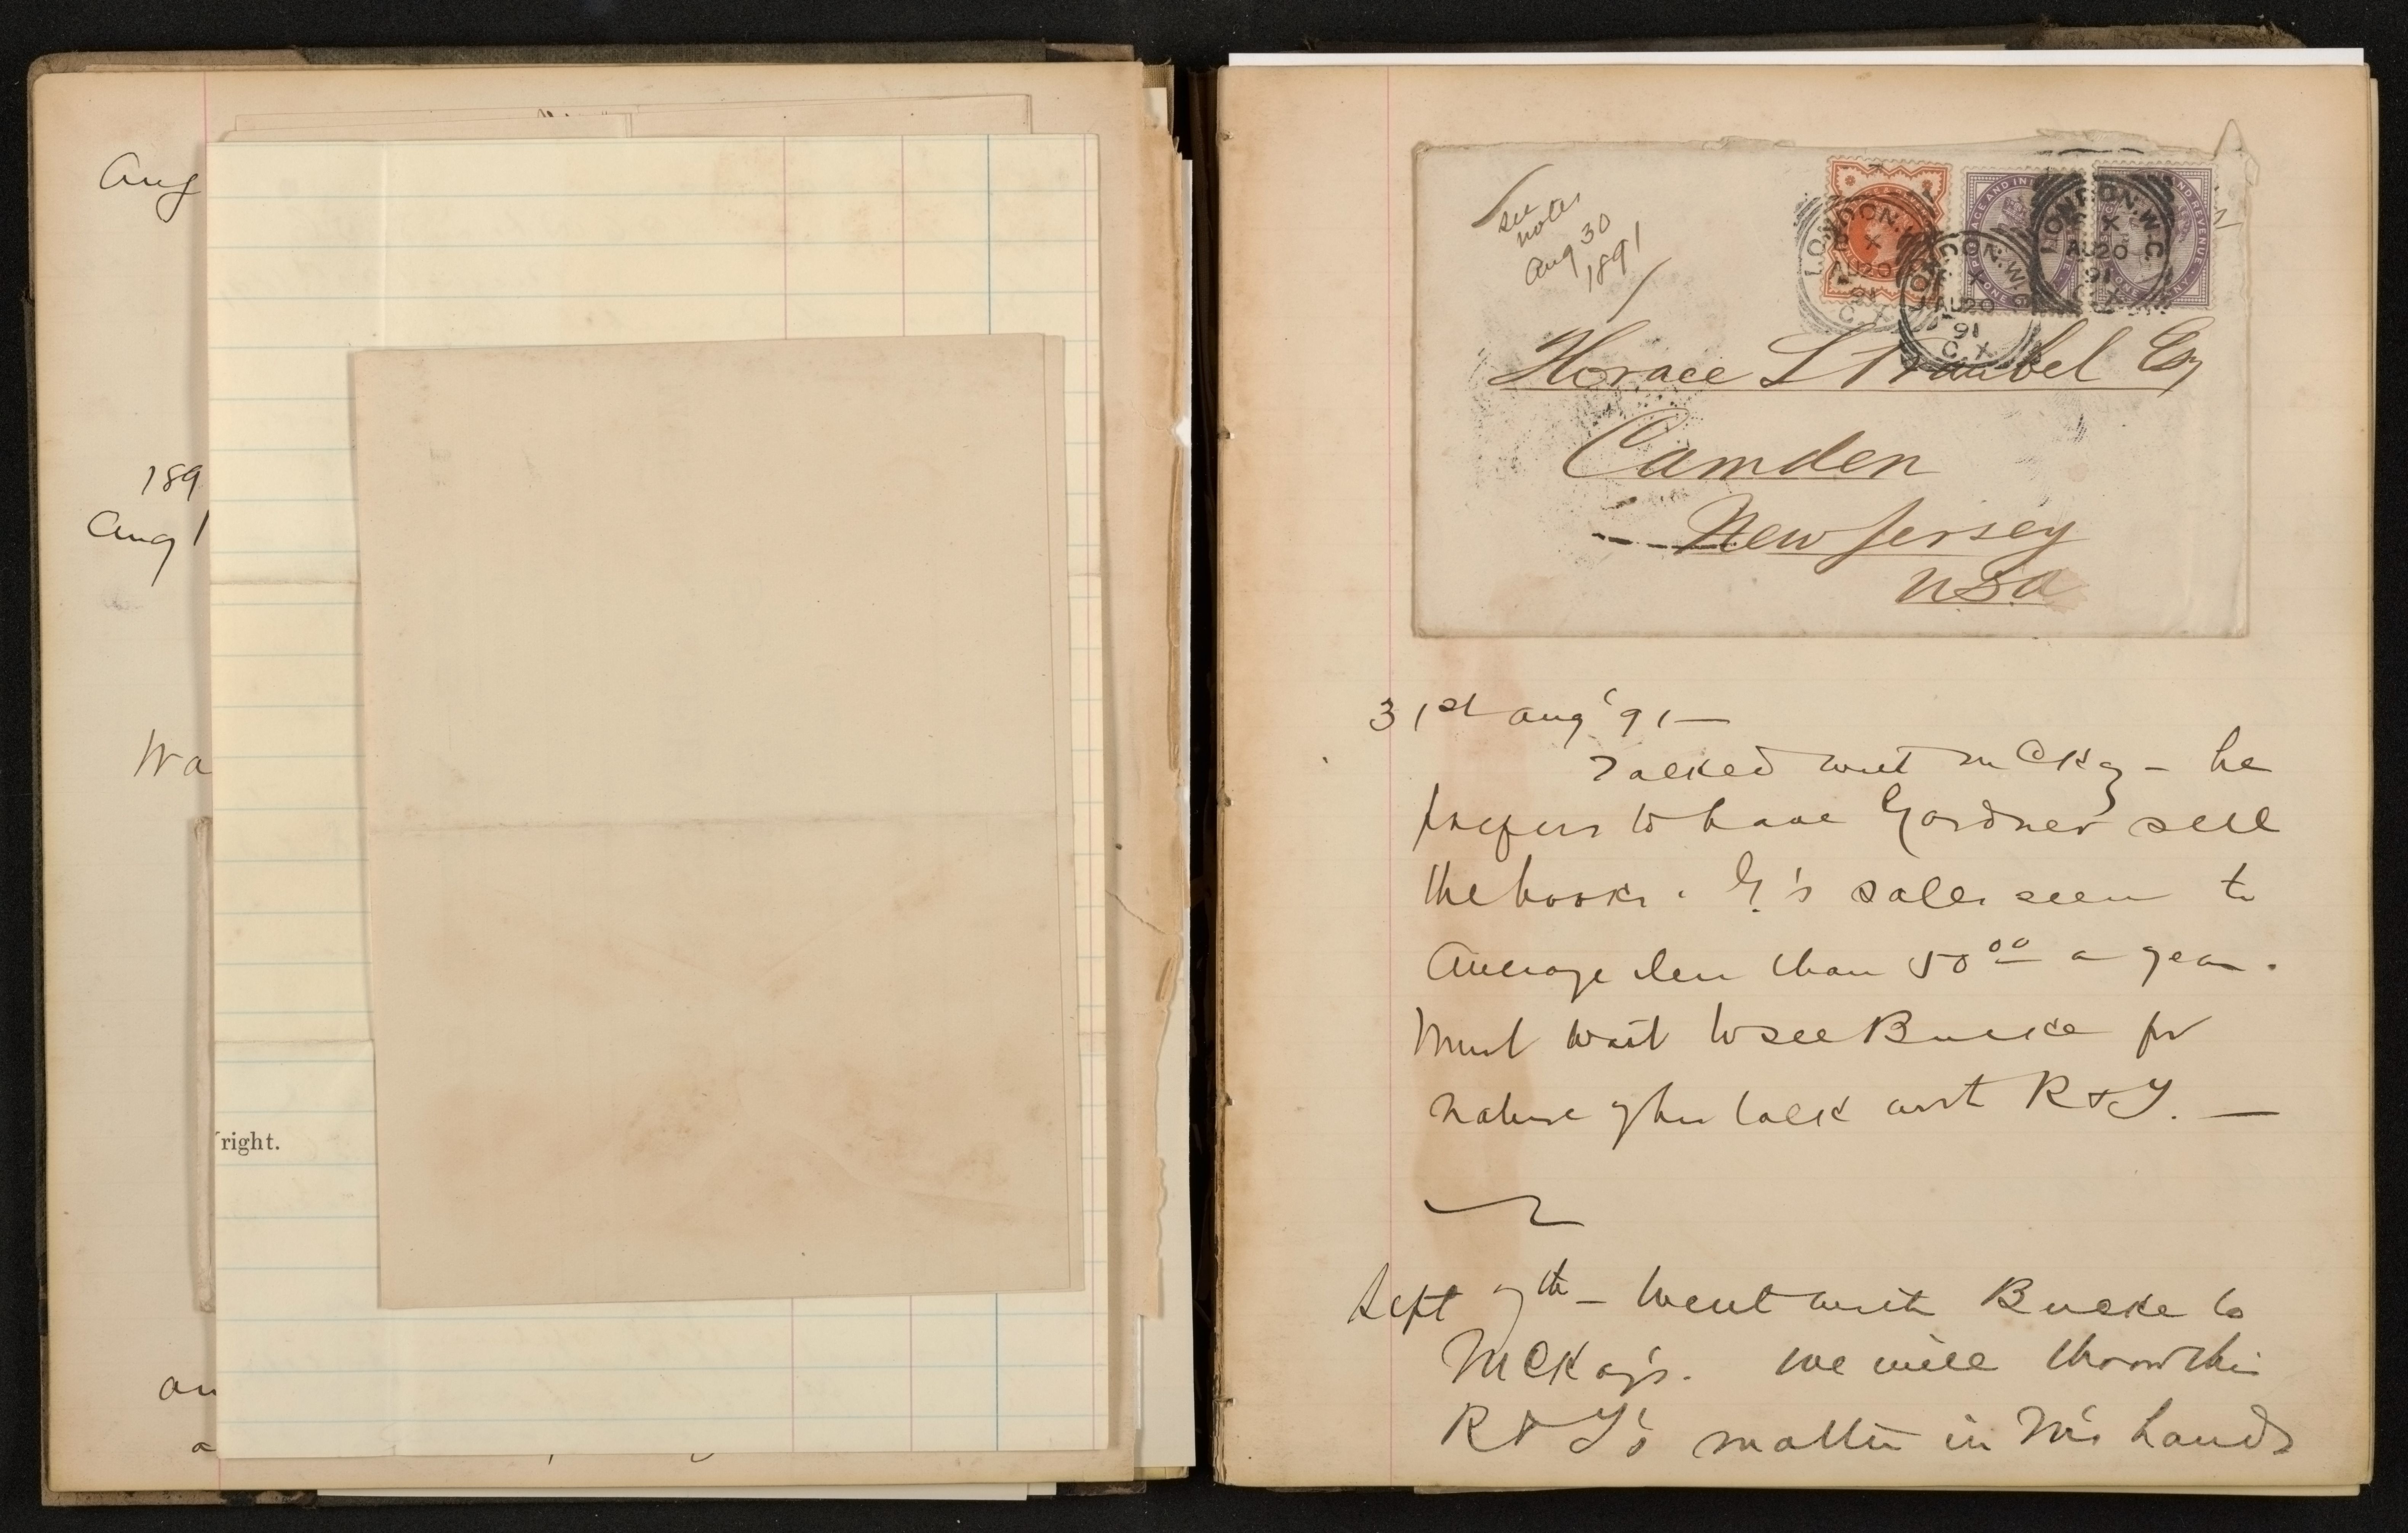 Aug
189
Aug 1
Wa
right.
an
a
see
notes
Aug 30
1891
LONDON.W.C
X
AU20
91
C X
LONDON.W.C
X
AU20
91
C X
LONDON.W.C
X
AU20
91
C X
Horace L Traubel Esq
Camden
New Jersey
USA
31st Aug '91 —
Talked with McKay — he
prefers to have Gardner sell
the books. G.'s sales seem to
average less than 50 00 a year.
Must wait to see Bucke for
nature of his talk with R & Y. —
Sept 7th — Went with Bucke to
McKay's. We will throw this
R & Y's matter in M's hands